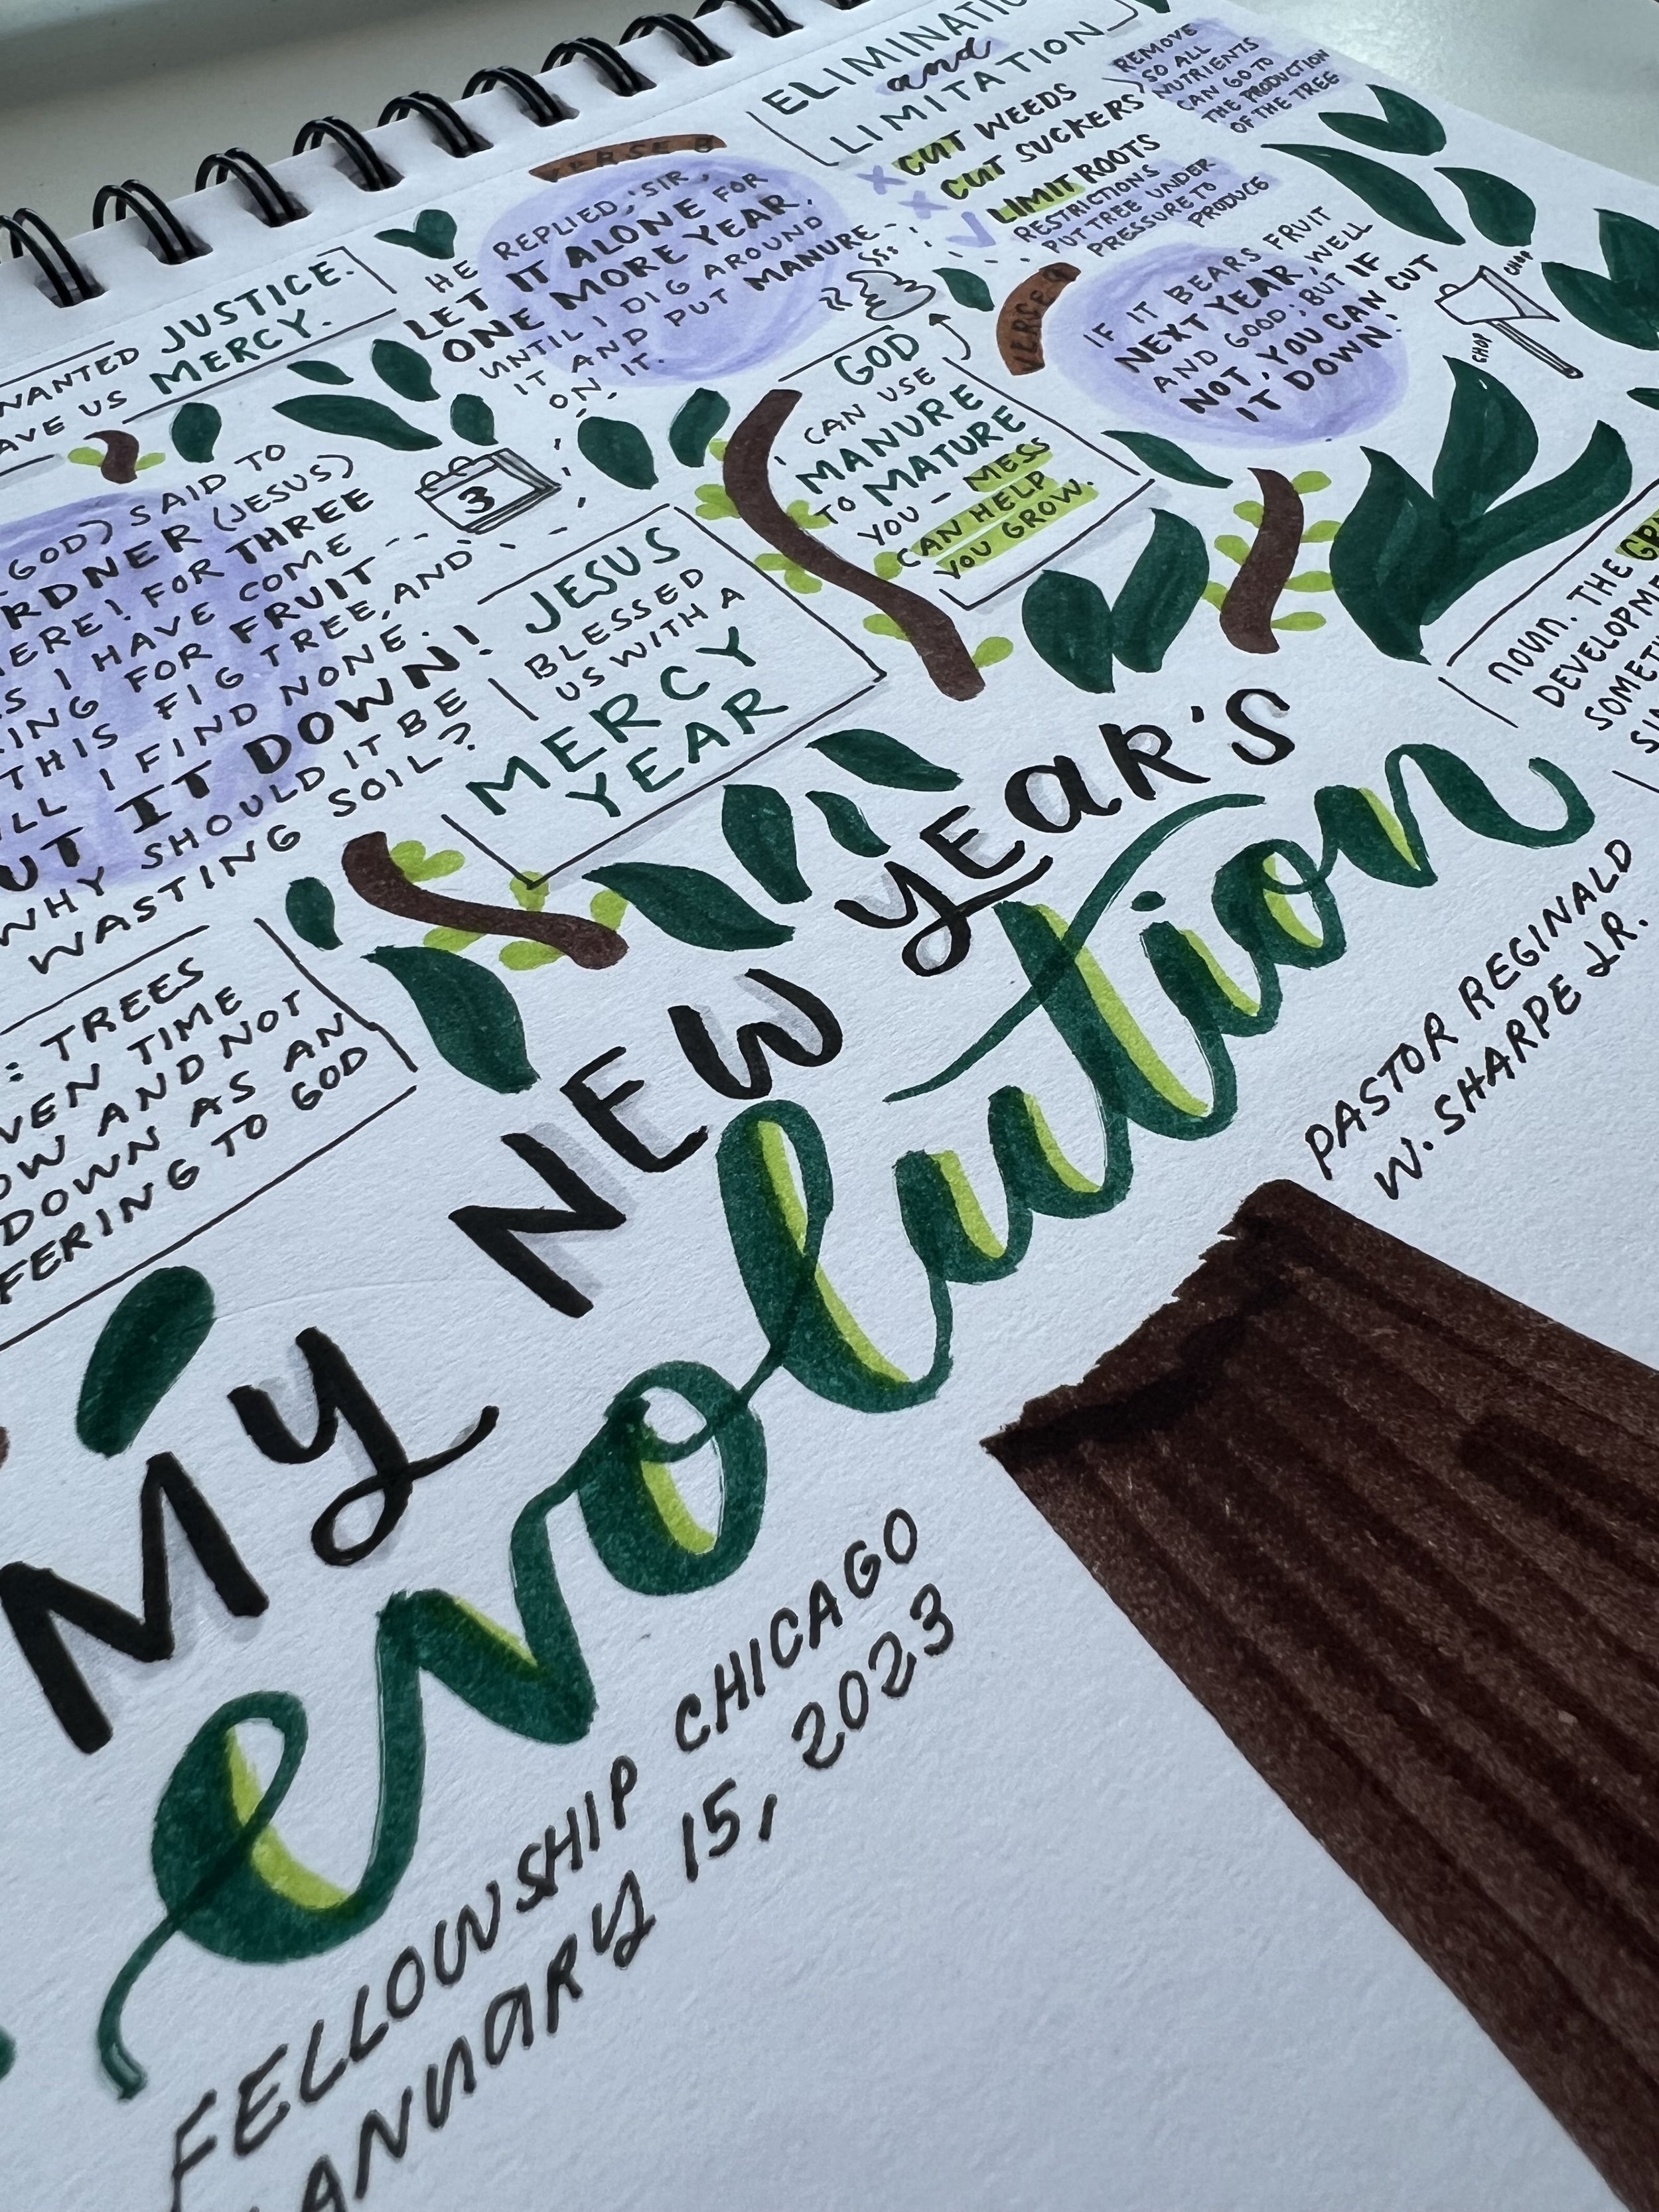 ELIMINATIO
and
LIMITATION
CUT WEEDS
CUT SUCKERS
LIMIT ROOTS
REMOVE
SO ALL
NUTRIENTS
CAN GO TO
THE PRODUCTION
OF THE TREE
RESTRICTIONS
PUT TREE UNDER
PRESSURE TO
PRODUCE
VERSE 8
HE REPLIED, 'SIR,
LET IT ALONE FOR
ONE MORE YEAR,
UNTIL I DIG AROUND
IT AND PUT MANURE
ON IT.
VERSE 9
IF IT BEARS FRUIT
NEXT YEAR, WELL
AND GOOD; BUT IF
NOT, YOU CAN CUT
IT DOWN.'
CHOP
CHOP
WANTED JUSTICE.
AVE US MERCY.
GOD) SAID TO
RDNER (JESUS)
ERE! FOR THREE
S I HAVE COME
KING FOR FRUIT
THIS FIG TREE, AND
ILL I FIND NONE.
UT IT DOWN!
WHY SHOULD IT BE
WASTING SOIL?
3
GOD
CAN USE
MANURE
TO MATURE
YOU - MESS
CAN HELP
YOU GROW.
JESUS
BLESSED
US WITH A
MERCY
YEAR
: TREES
VEN TIME
OW AND NOT
DOWN AS AN
FERING TO GOD
noun. THE GR
DEVELOPME
SOMET
SI
MY NEW YEAR'S
evolution
PASTOR REGINALD
W. SHARPE JR.
FELLOWSHIP CHICAGO
JANUARY 15, 2023